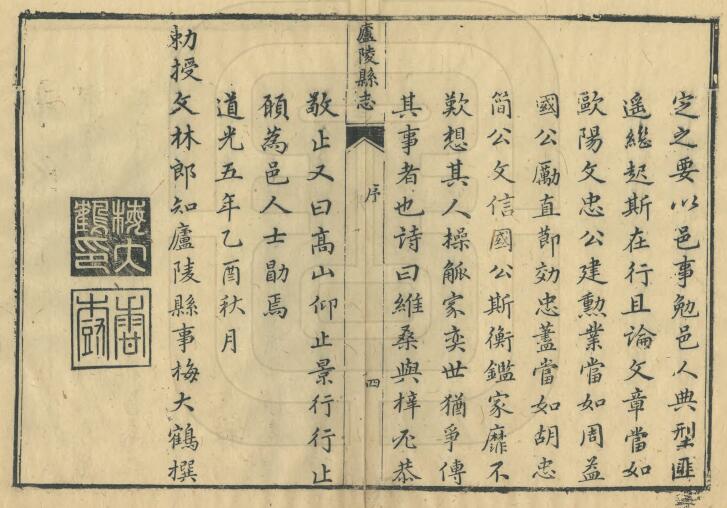 定之要以邑事勉邑人典型匪
遥繼起斯在行且論文章當如
歐陽文忠公建勳業當如周益
國公勵直節効忠藎當如胡忠
簡公文信國公斯衡鑑家靡不
歎想其人操觚家奕世猶爭傳
其事者也詩曰維桑與梓不恭
廬陵縣志
序
四
敬止又曰高山仰止景行行止
願為邑人士勖焉
道光五年乙酉秋月
勅授文林郎知廬陵縣事梅大鶴撰
梅大鶴印